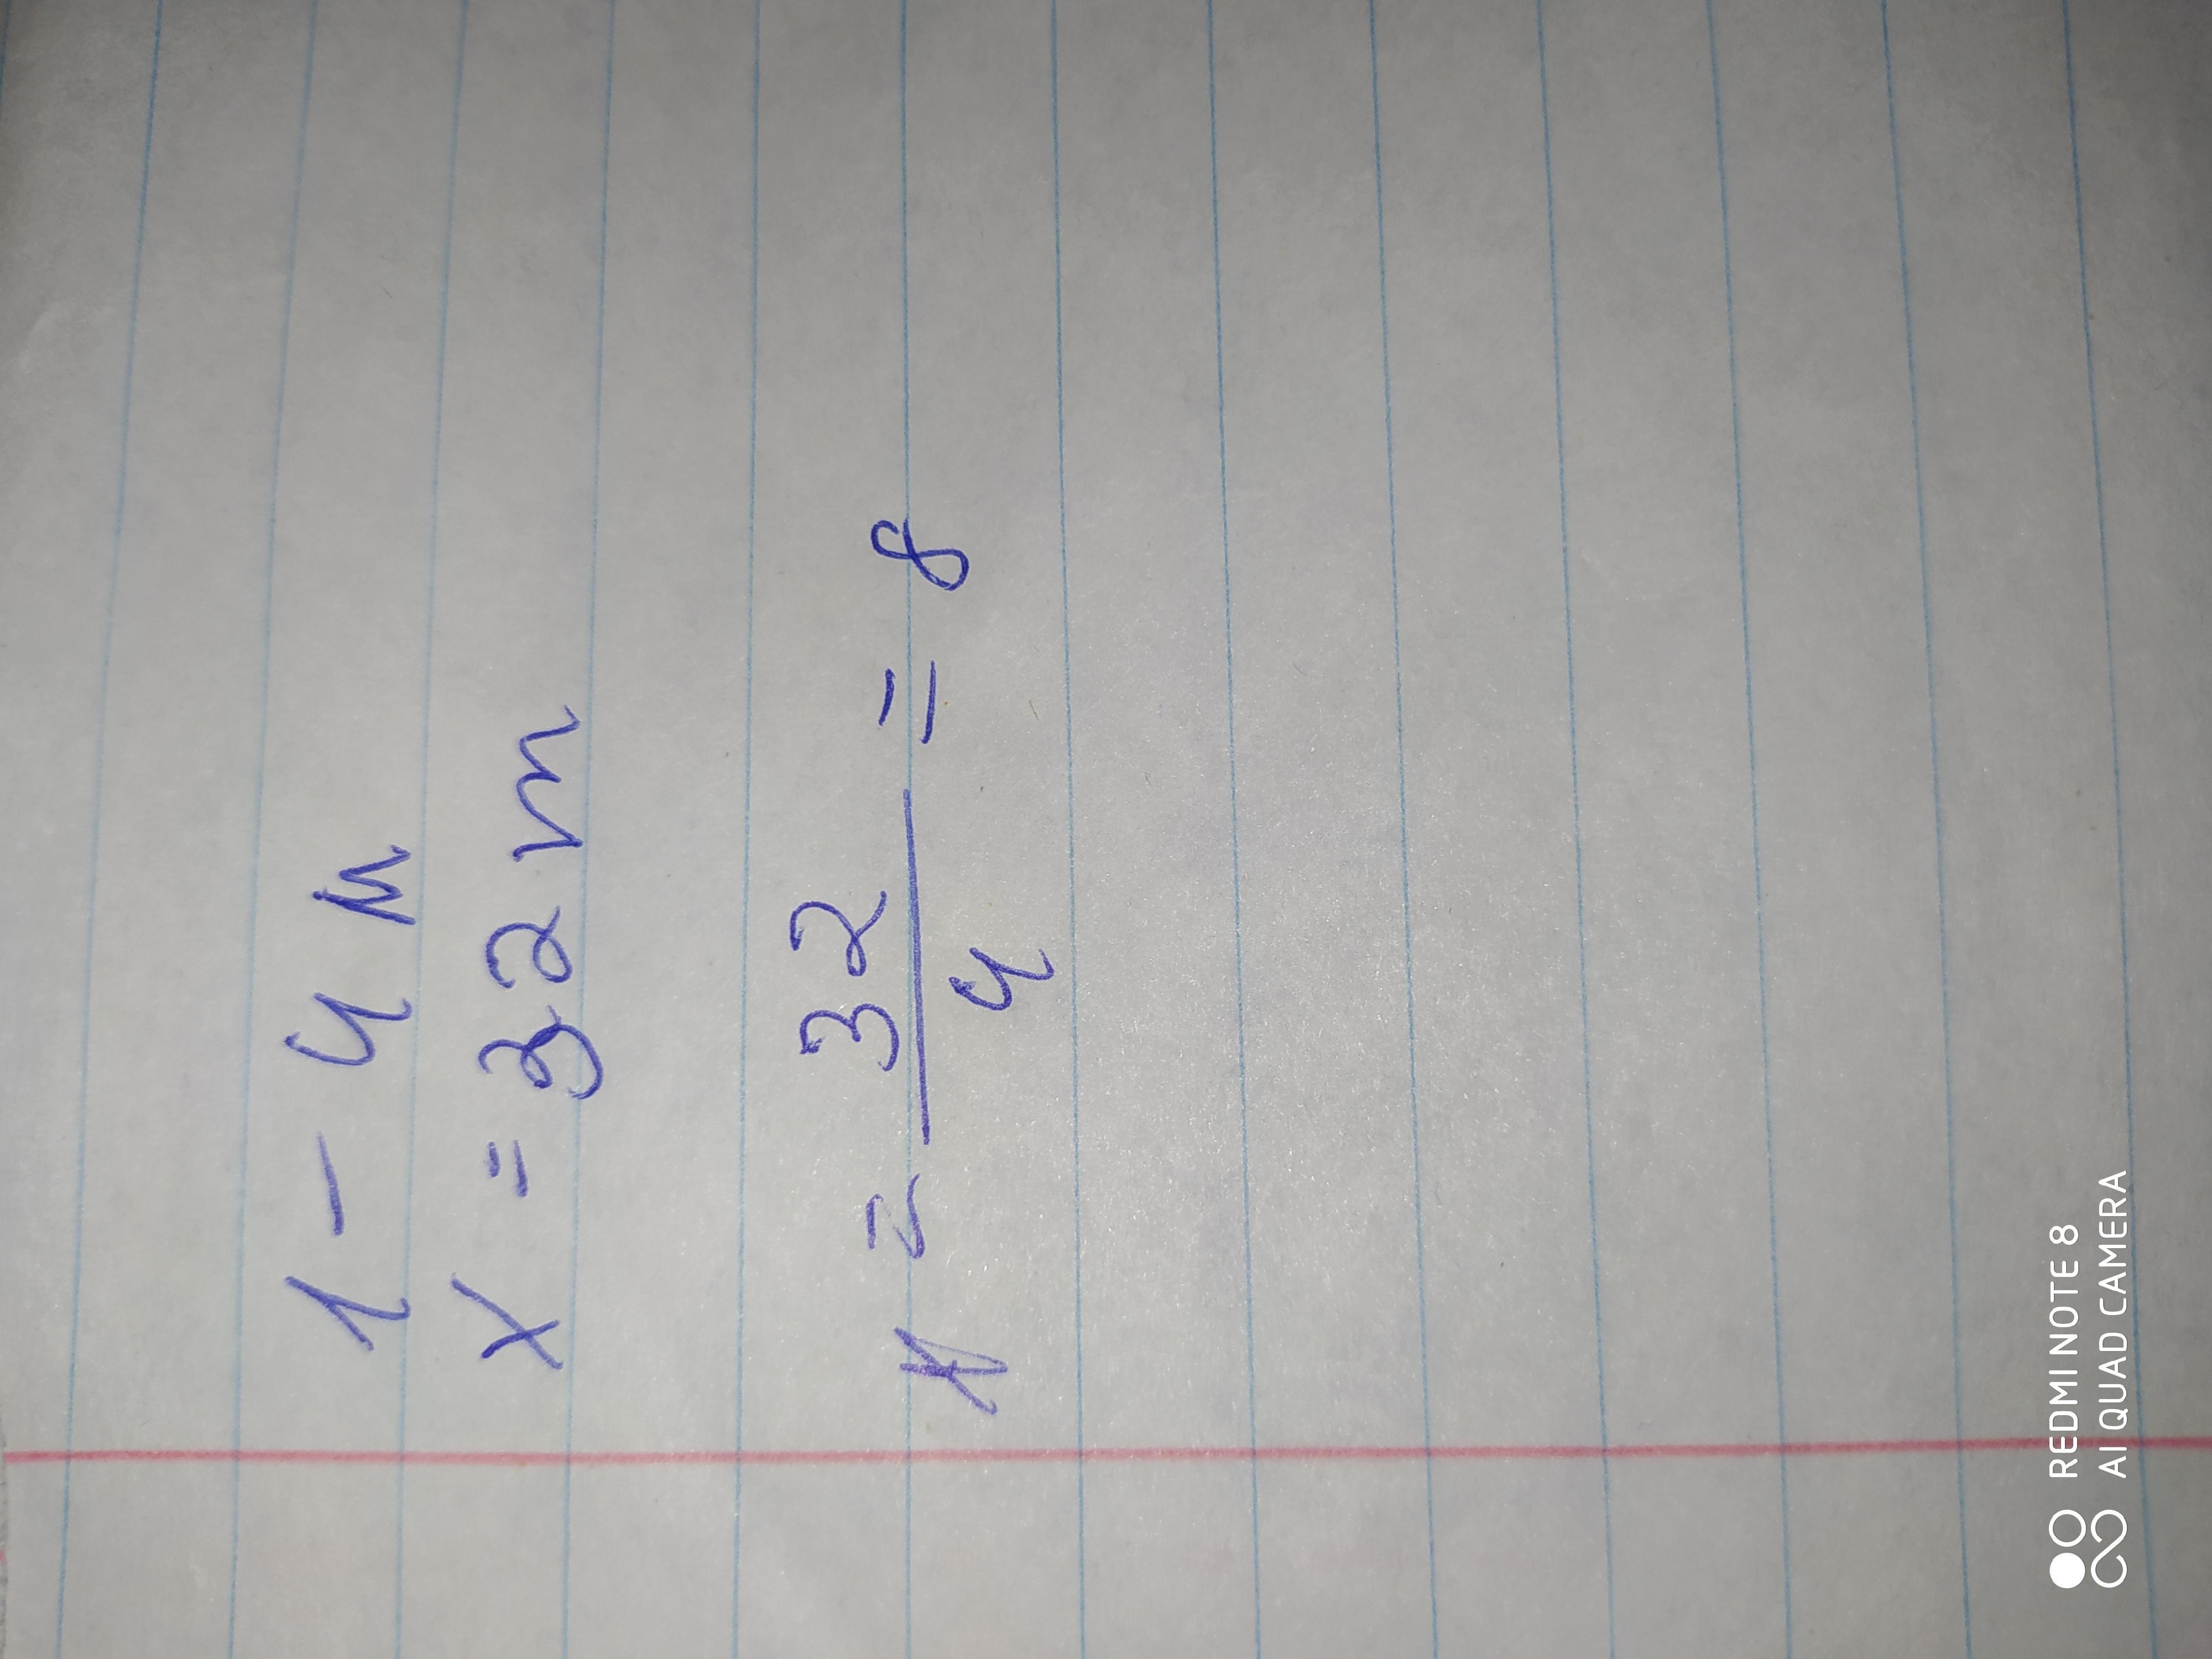 1 – 4 м
x = 32 m
x = 32/4 = 8
REDMI NOTE 8
AI QUAD CAMERA